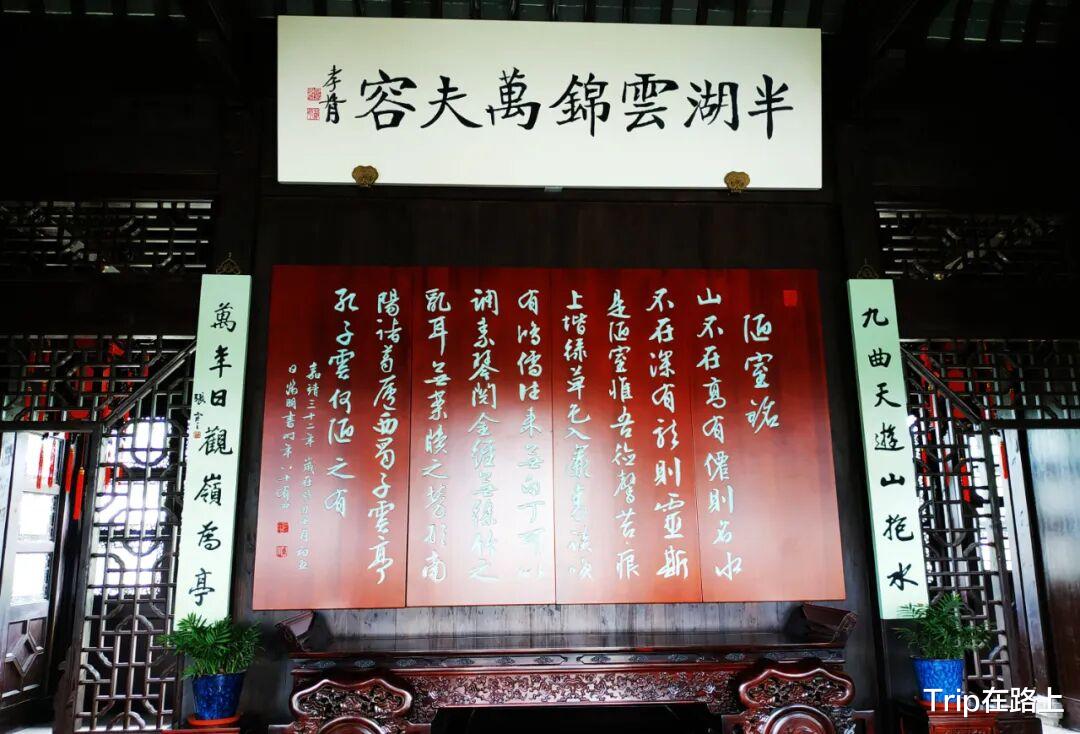 半湖雲錦萬夫容
孝胥
九曲天遊山抱水
陋室銘
山不在高有僊則名水
不在深有龍則靈斯
是陋室惟吾德馨苔痕
上堦綠草色入簾青談咲
有鴻儒往来無白丁可以
調素琴閱金經無絲竹之
亂耳無案牘之勞形南
陽諸葛廬西蜀子雲亭
孔子雲何陋之有
嘉靖三十二年歲在癸丑七月初五
日徵明書時年八十有四
萬年日觀嶺為亭
Trip在路上